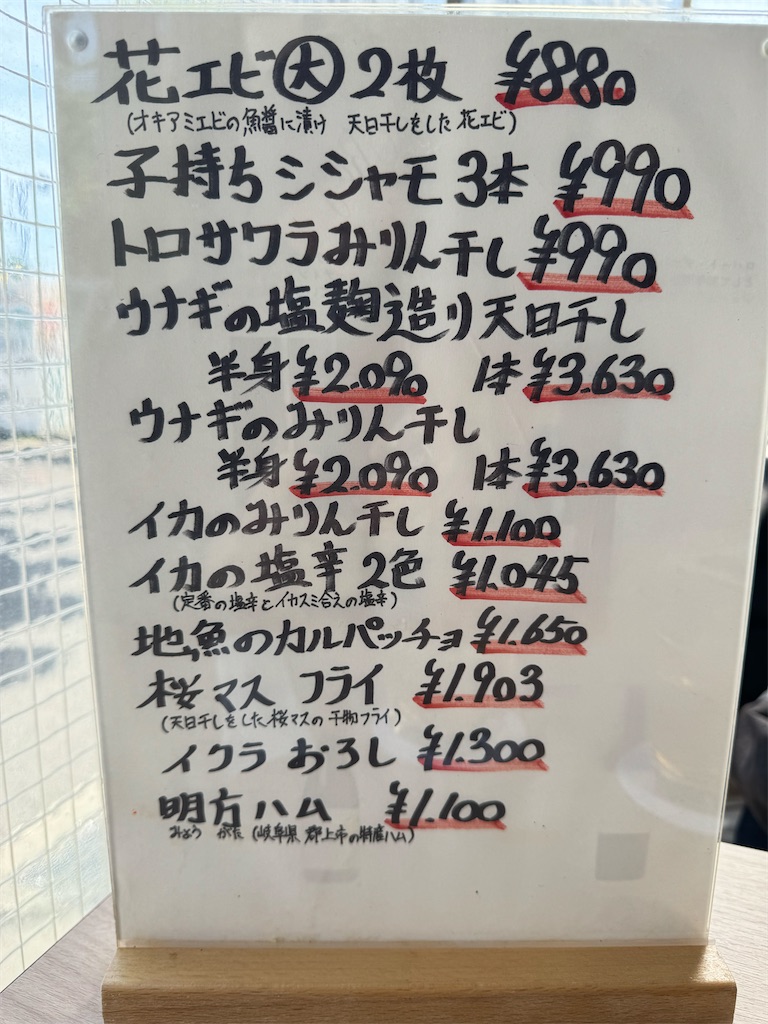 花エビ大2枚 ¥880
(オキアミエビの魚醤に漬け 天日干しをした花エビ)
子持ちシシャモ3本 ¥990
トロサワラみりん干し ¥990
ウナギの塩麹造り天日干し
半身 ¥2.090 1本 ¥3.630
ウナギのみりん干し
半身 ¥2.090 1本 ¥3.630
イカのみりん干し ¥1.100
イカの塩辛2色 ¥1.045
(定番の塩辛とイカスミ合えの塩辛)
地魚のカルパッチョ ¥1.650
桜マス フライ ¥1.903
(天日干しをした桜マスの干物フライ)
イクラおろし ¥1.300
明方ハム ¥1.100
みょう がた (岐阜県 郡上市の特産ハム)